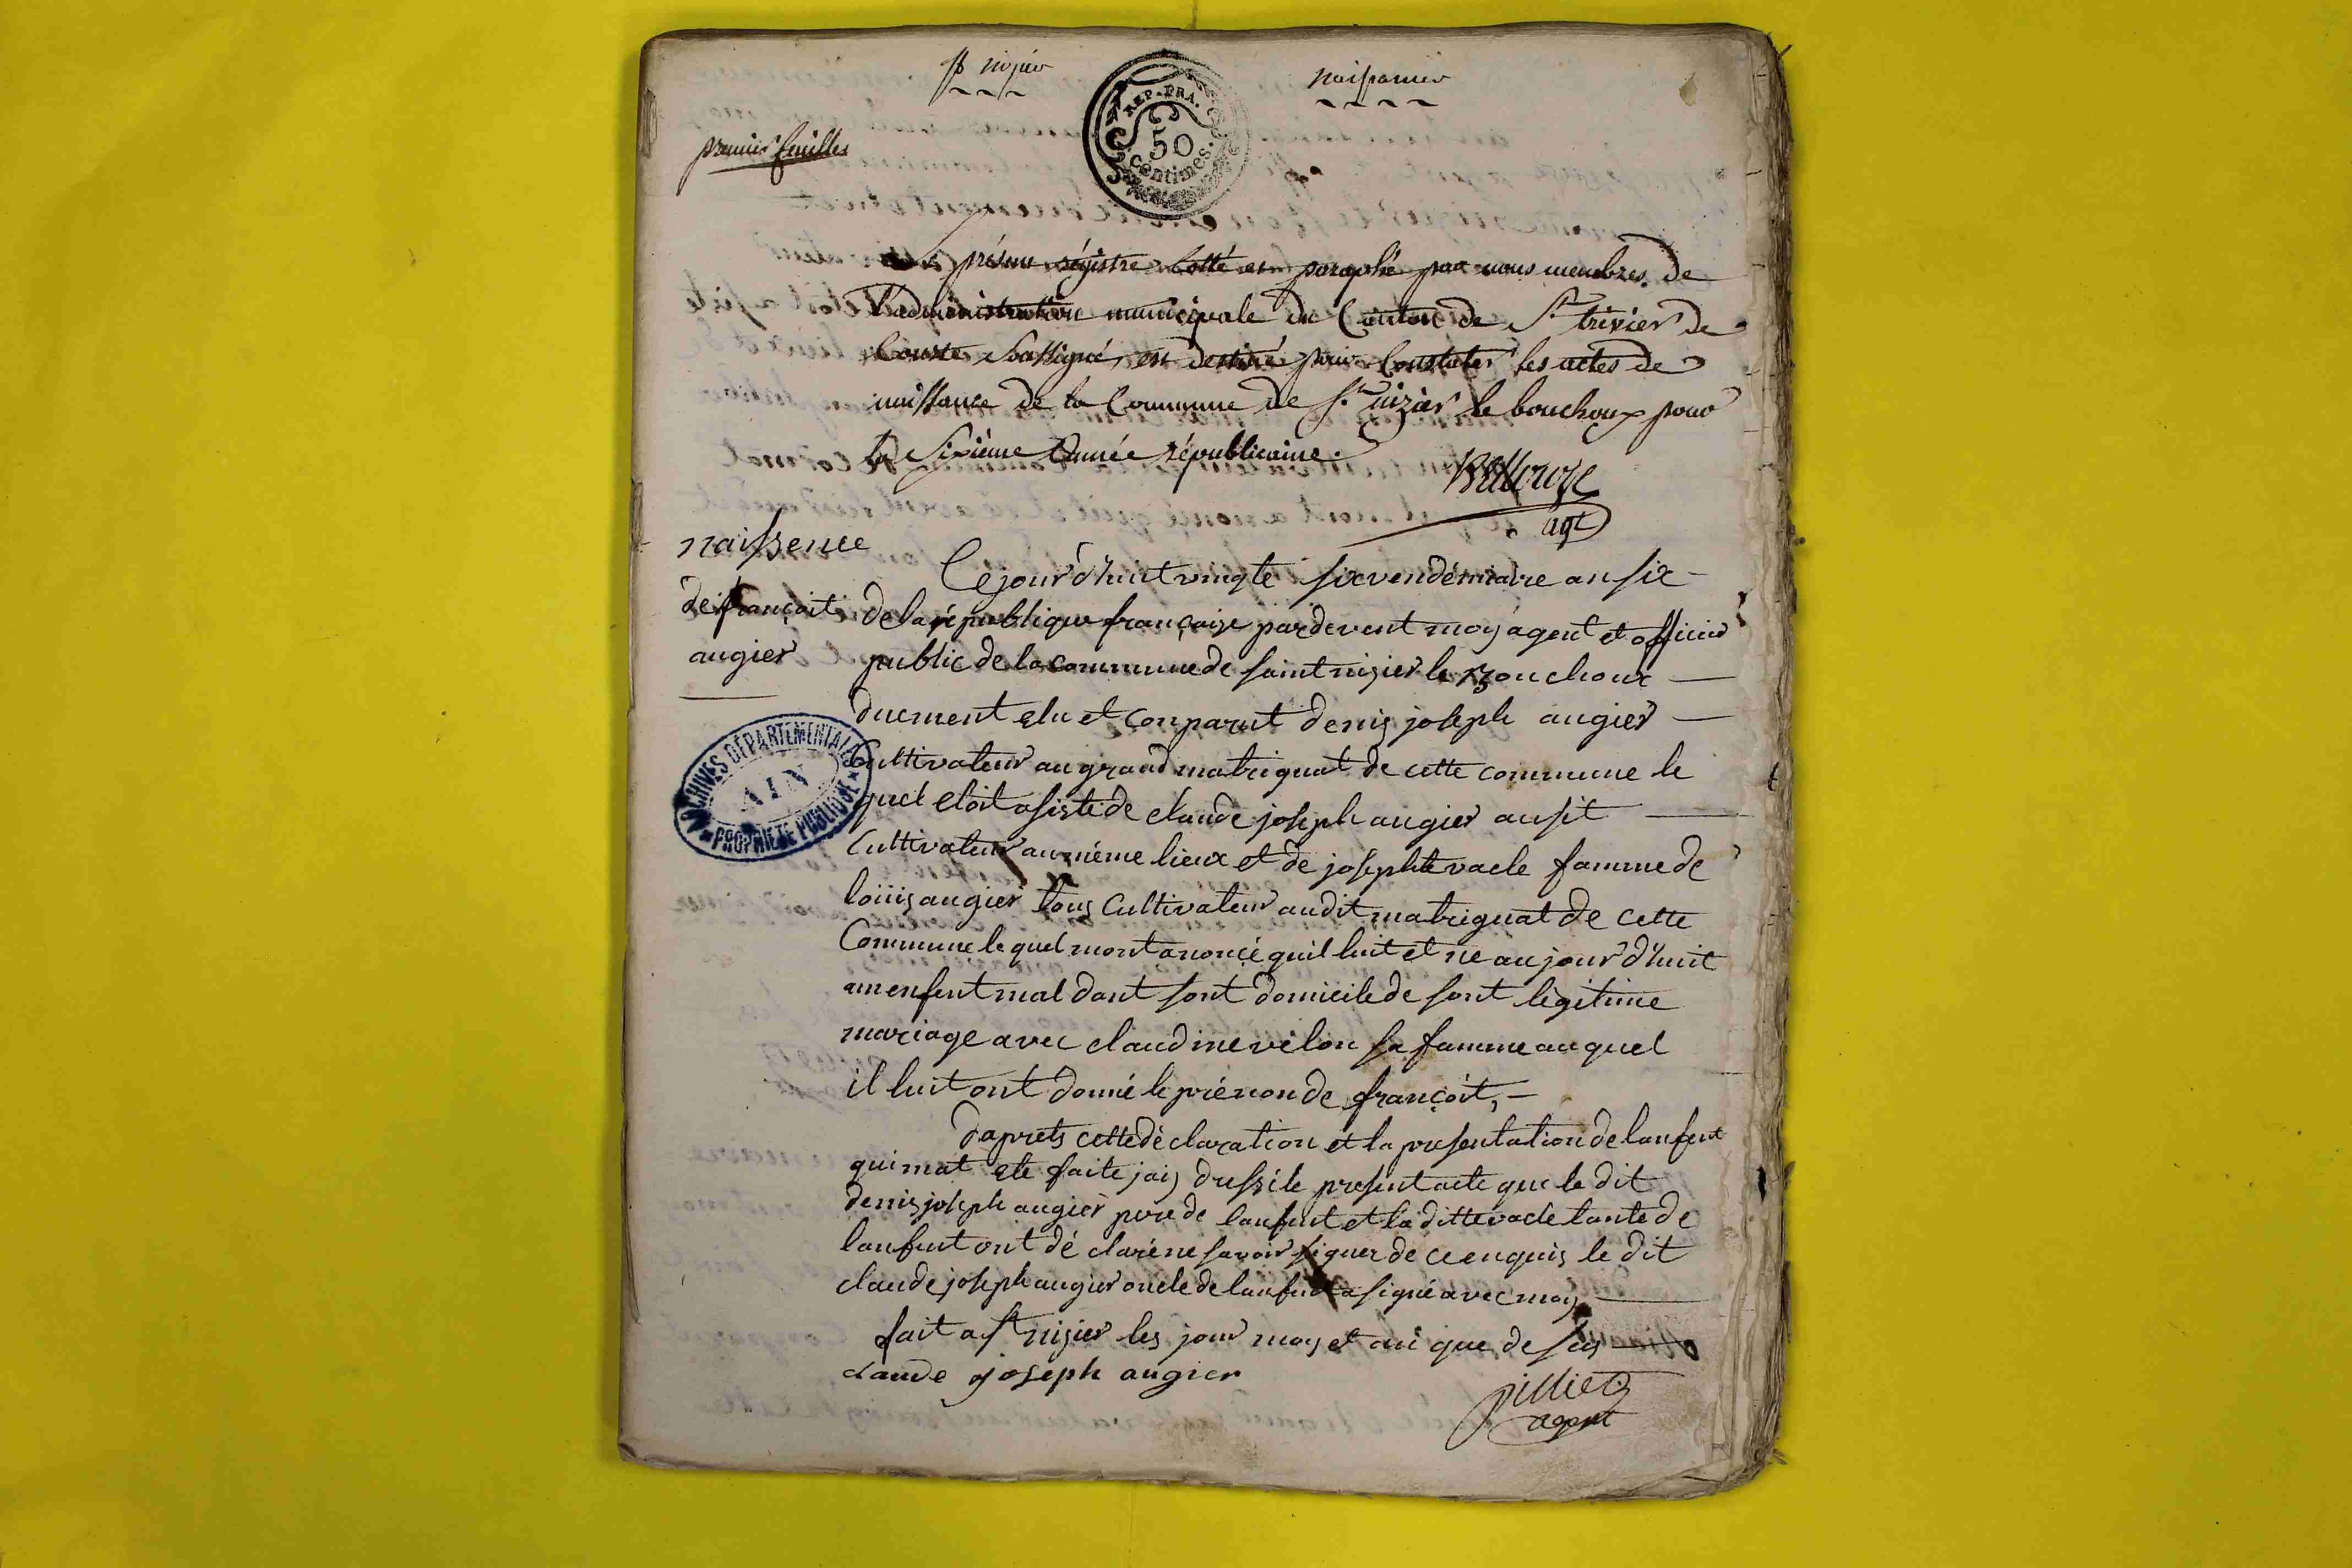 St nizier
naissances
REP. FRA.
50
centimes.
premier feuillet
Le présent régistre cotté et paraphé par nous membres de
l'administration municipale du Canton de St trivier de
Courte Soussigné, est destiné pour Constater les actes de
naissance de la Commune de St nizier le bouchoux pour
la Sixième année républicaine.
agt
naissence
de françoit
augier
Cejourd'huit vingte six vendémiaire an six
de la république françoise pardevent moy agent et officier
public de la commune de saint nizier le Bouchoux
duement elu et conparut denis joseph augier
Cultivateur au grand matrignat de cette commune le
quel etoit asisté de claude joseph augier ausit
Cultivateur au même lieux et de josephte vacle famme de
loüis augier tous Cultivateur audit matrignat de cette
Commune le quel mont anoncé quil luit et né aujour d'huit
un enfent mal dant sont domicile de sont légitime
mariage avec claudine velon sa famme au quel
il luit ont donné le prénon de françoit,
daprets cette déclaration et la presentation de lanfent
qui mat eté faite jaiy dressé le present acte que le dit
denis joseph augier pere de lanfent et la ditte vacle tante de
lanfent ont déclaré ne savoir signer de ce enquis le dit
claude joseph augier oncle de lanfent a signé avec moy
fait a St nizier les jour moy et an que desus
claude joseph augier
pillied
agent
ARCHIVES DÉPARTEMENTALES
AIN
PROPRIÉTÉ PUBLIQUE